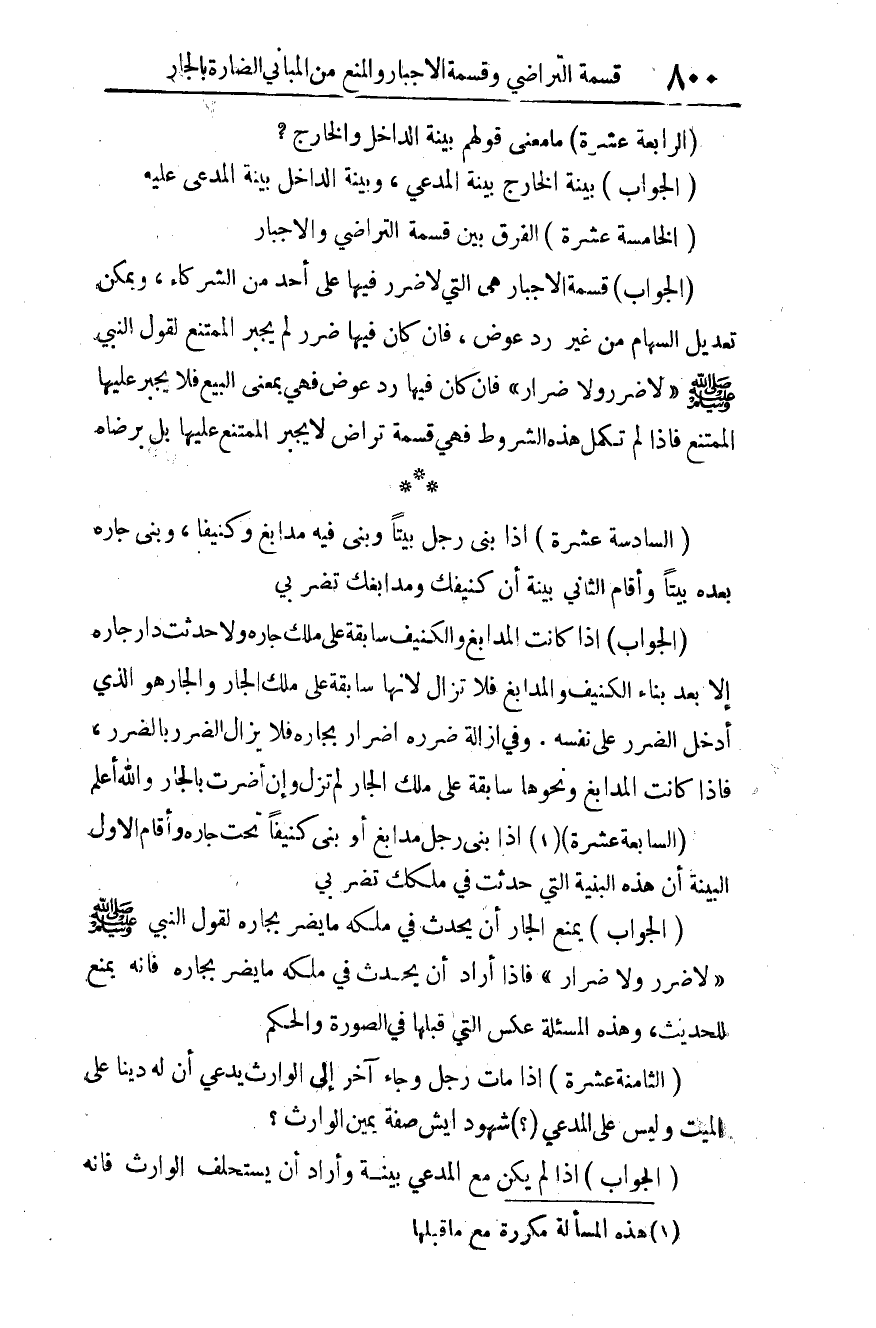 ٨٠٠ قسمة التراضي وقسمة الاجبار والمنع من المباني الضارة بالجار
(الرابعة عشرة) مامعنى قولهم بينة الداخل والخارج ?
( الجواب ) بينة الخارج بينة المدعي ، وبينة الداخل بينة المدعى عليه
( الخامسة عشرة ) الفرق بين قسمة التراضي والاجبار
(الجواب) قسمة الاجبار هى التي لاضرر فيها على أحد من الشركاء ، ويمكن
تعديل السهام من غير رد عوض ، فان كان فيها ضرر لم يجبر الممتنع لقول النبي
ﷺ «لاضرر ولا ضرار» فان كان فيها رد عوض فهي بمعنى البيع فلا يجبر عليها
الممتنع فاذا لم تكمل هذه الشروط فهي قسمة تراض لايجبر الممتنع عليها بل برضاه
***
( السادسة عشرة ) اذا بنى رجل بيتاً وبنى فيه مدابغ وكنيفا ، وبنى جاره
بعده بيتاً وأقام الثاني بينة أن كنيفك ومدابغك تضر بي
(الجواب) اذا كانت المدابغ والكنيف سابقة على ملك جاره ولا حدثت دار جاره
إلا بعد بناء الكنيف والمدابغ فلا تزال لانها سابقة على ملك الجار والجار هو الذي
أدخل الضرر على نفسه . وفي ازالة ضرره اضرار بجاره فلا يزال الضرر بالضرر ،
فاذا كانت المدابغ ونحوها سابقة على ملك الجار لم تزل وإن أضرت بالجار والله أعلم
(السابعة عشرة)(١) اذا بنى رجل مدابغ أو بنى كنيفاً تحت جاره وأقام الاول
البينة أن هذه البنية التي حدثت في ملكك تضر بي
( الجواب ) يمنع الجار أن يحدث في ملكه مايضر بجاره لقول النبي ﷺ
«لاضرر ولا ضرار » فاذا أراد أن يحدث في ملكه مايضر بجاره فانه يمنع
للحديث، وهذه المسئلة عكس التي قبلها في الصورة والحكم
( الثامنة عشرة ) اذا مات رجل وجاء آخر إلى الوارث يدعي أن له دينا على
الميت وليس على المدعي (؟) شهود ايش صفة يمين الوارث ؟
( الجواب ) اذا لم يكن مع المدعي بينة وأراد أن يستحلف الوارث فانه
(١) هذه المسألة مكررة مع ماقبلها